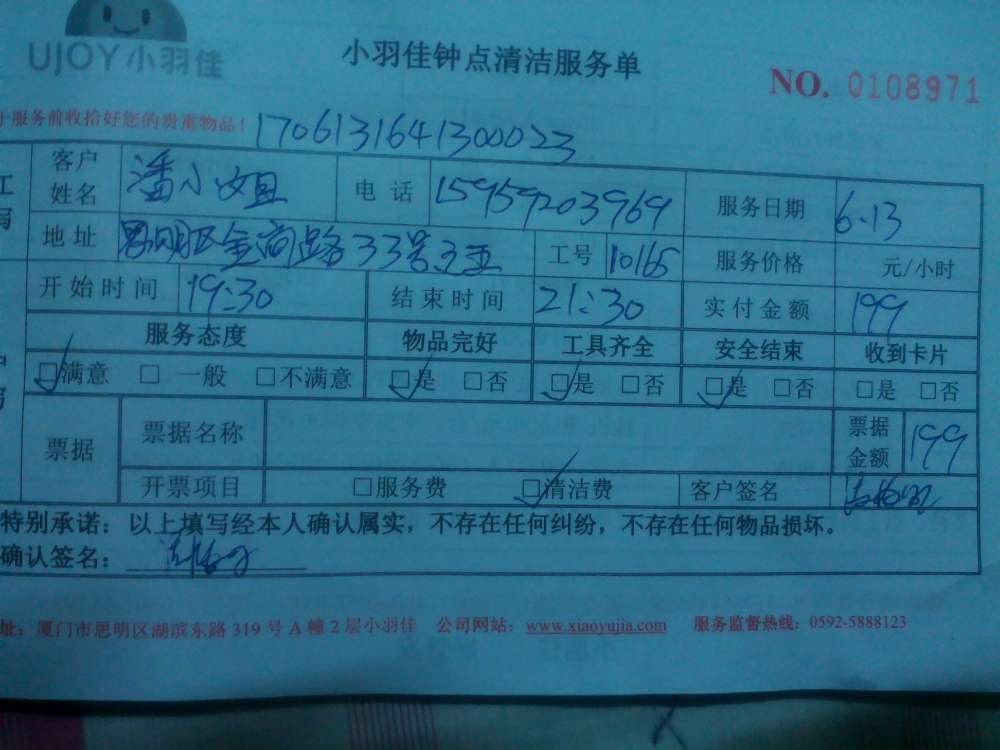 UJOY小羽佳
小羽佳钟点清洁服务单
NO. 0108971
于服务前收拾好您的贵重物品！
1706131641300023
客户姓名 潘小姐 电话 15959203969 服务日期 6.13
地址 思明区金尚路33号之五 工号 10165 服务价格 元/小时
开始时间 19:30 结束时间 21:30 实付金额 199
服务态度 物品完好 工具齐全 安全结束 收到卡片
☑满意 □一般 □不满意 ☑是 □否 ☑是 □否 ☑是 □否 □是 □否
票据 票据名称 票据金额 199
开票项目 □服务费 ☑清洁费 客户签名
特别承诺：以上填写经本人确认属实，不存在任何纠纷，不存在任何物品损坏。
确认签名：
址：厦门市思明区湖滨东路 319 号 A 幢 2 层小羽佳 公司网站：www.xiaoyujia.com 服务监督热线：0592-5888123